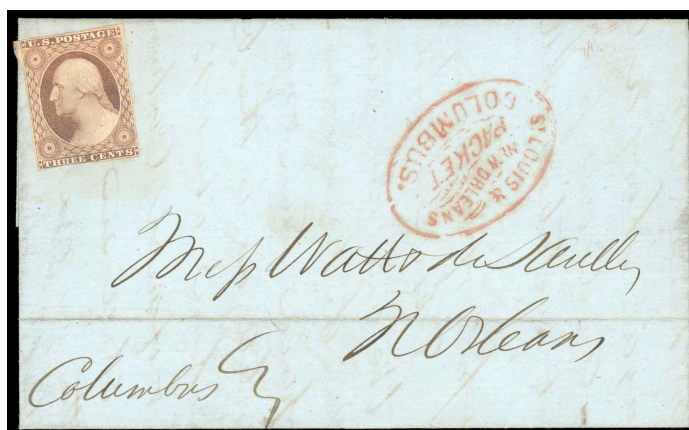 U.S. POSTAGE
THREE CENTS
ST LOUIS &
NEW ORLEANS
PACKET
COLUMBUS.
Mess Watts de Saulles
N Orleans
Columbus